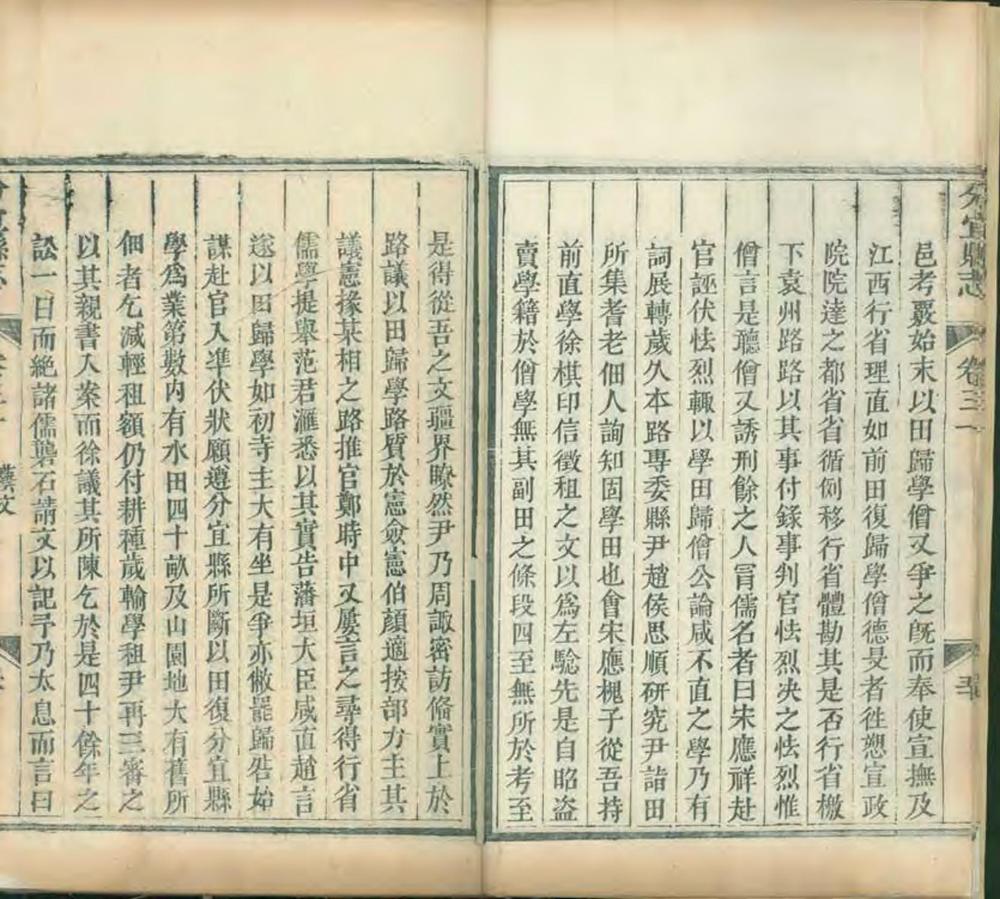 分宜縣志 卷三
邑考覈始末以田歸學僧又爭之旣而奉使宣撫及
江西行省理直如前田復歸學僧德旻者徃愬宣政
院院達之都省省循例移行省體勘其是否行省檄
下袁州路路以其事付錄事判官怯烈决之怯烈惟
僧言是聽僧又誘刑餘之人冐儒名者曰宋應祥赴
官誣伏怯烈輒以學田歸僧公論咸不直之學乃有
詞展轉歲久本路專委縣尹趙侯思順研究尹詣田
所集耆老佃人詢知固學田也會宋應槐子從吾持
前直學徐棋印信徵租之文以爲左騐先是自昭盗
賣學籍於僧學無其副田之條段四至無所於考至
是得從吾之文疆界瞭然尹乃周諏密訪俻實上於
路議以田歸學路質於憲僉憲伯顔適按部方主其
議憲掾某相之路推官鄭時中又屢言之尋得行省
儒學提舉范君滙悉以其實告藩垣大臣咸直趙言
遂以田歸學如初寺主大有坐是爭亦儆罷歸咎始
謀赴官入凖伏狀願遵分宜縣所斷以田復分宜縣
學爲業第數内有水田四十畝及山園地大有舊所
佃者乞減輕租額仍付耕種歲輸學租尹再三審之
以其親書入案而徐議其所陳乞於是四十餘年之
訟一日而絶諸儒礱石請文以記予乃太息而言曰
藝文